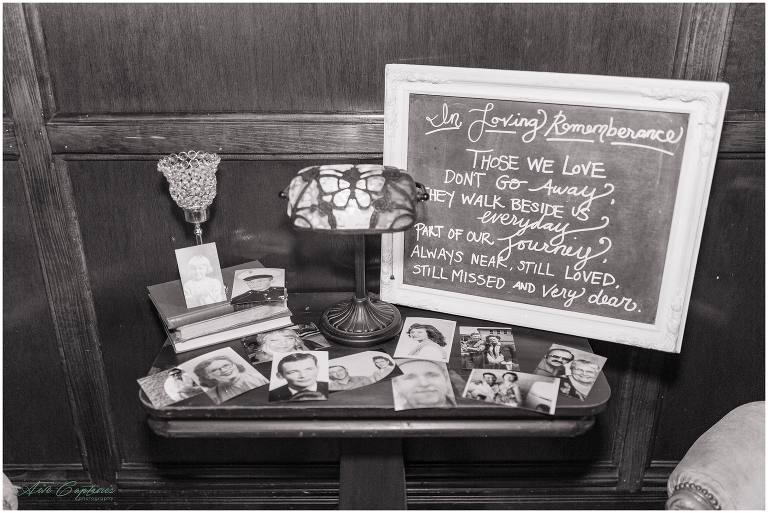 In Loving Rememberance
THOSE WE LOVE
DONT GO Away,
THEY WALK BESIDE US
everyday.
PART OF OUR Journey,
ALWAYS NEAR, STILL LOVED,
STILL MISSED AND Very dear.
Captures
photography